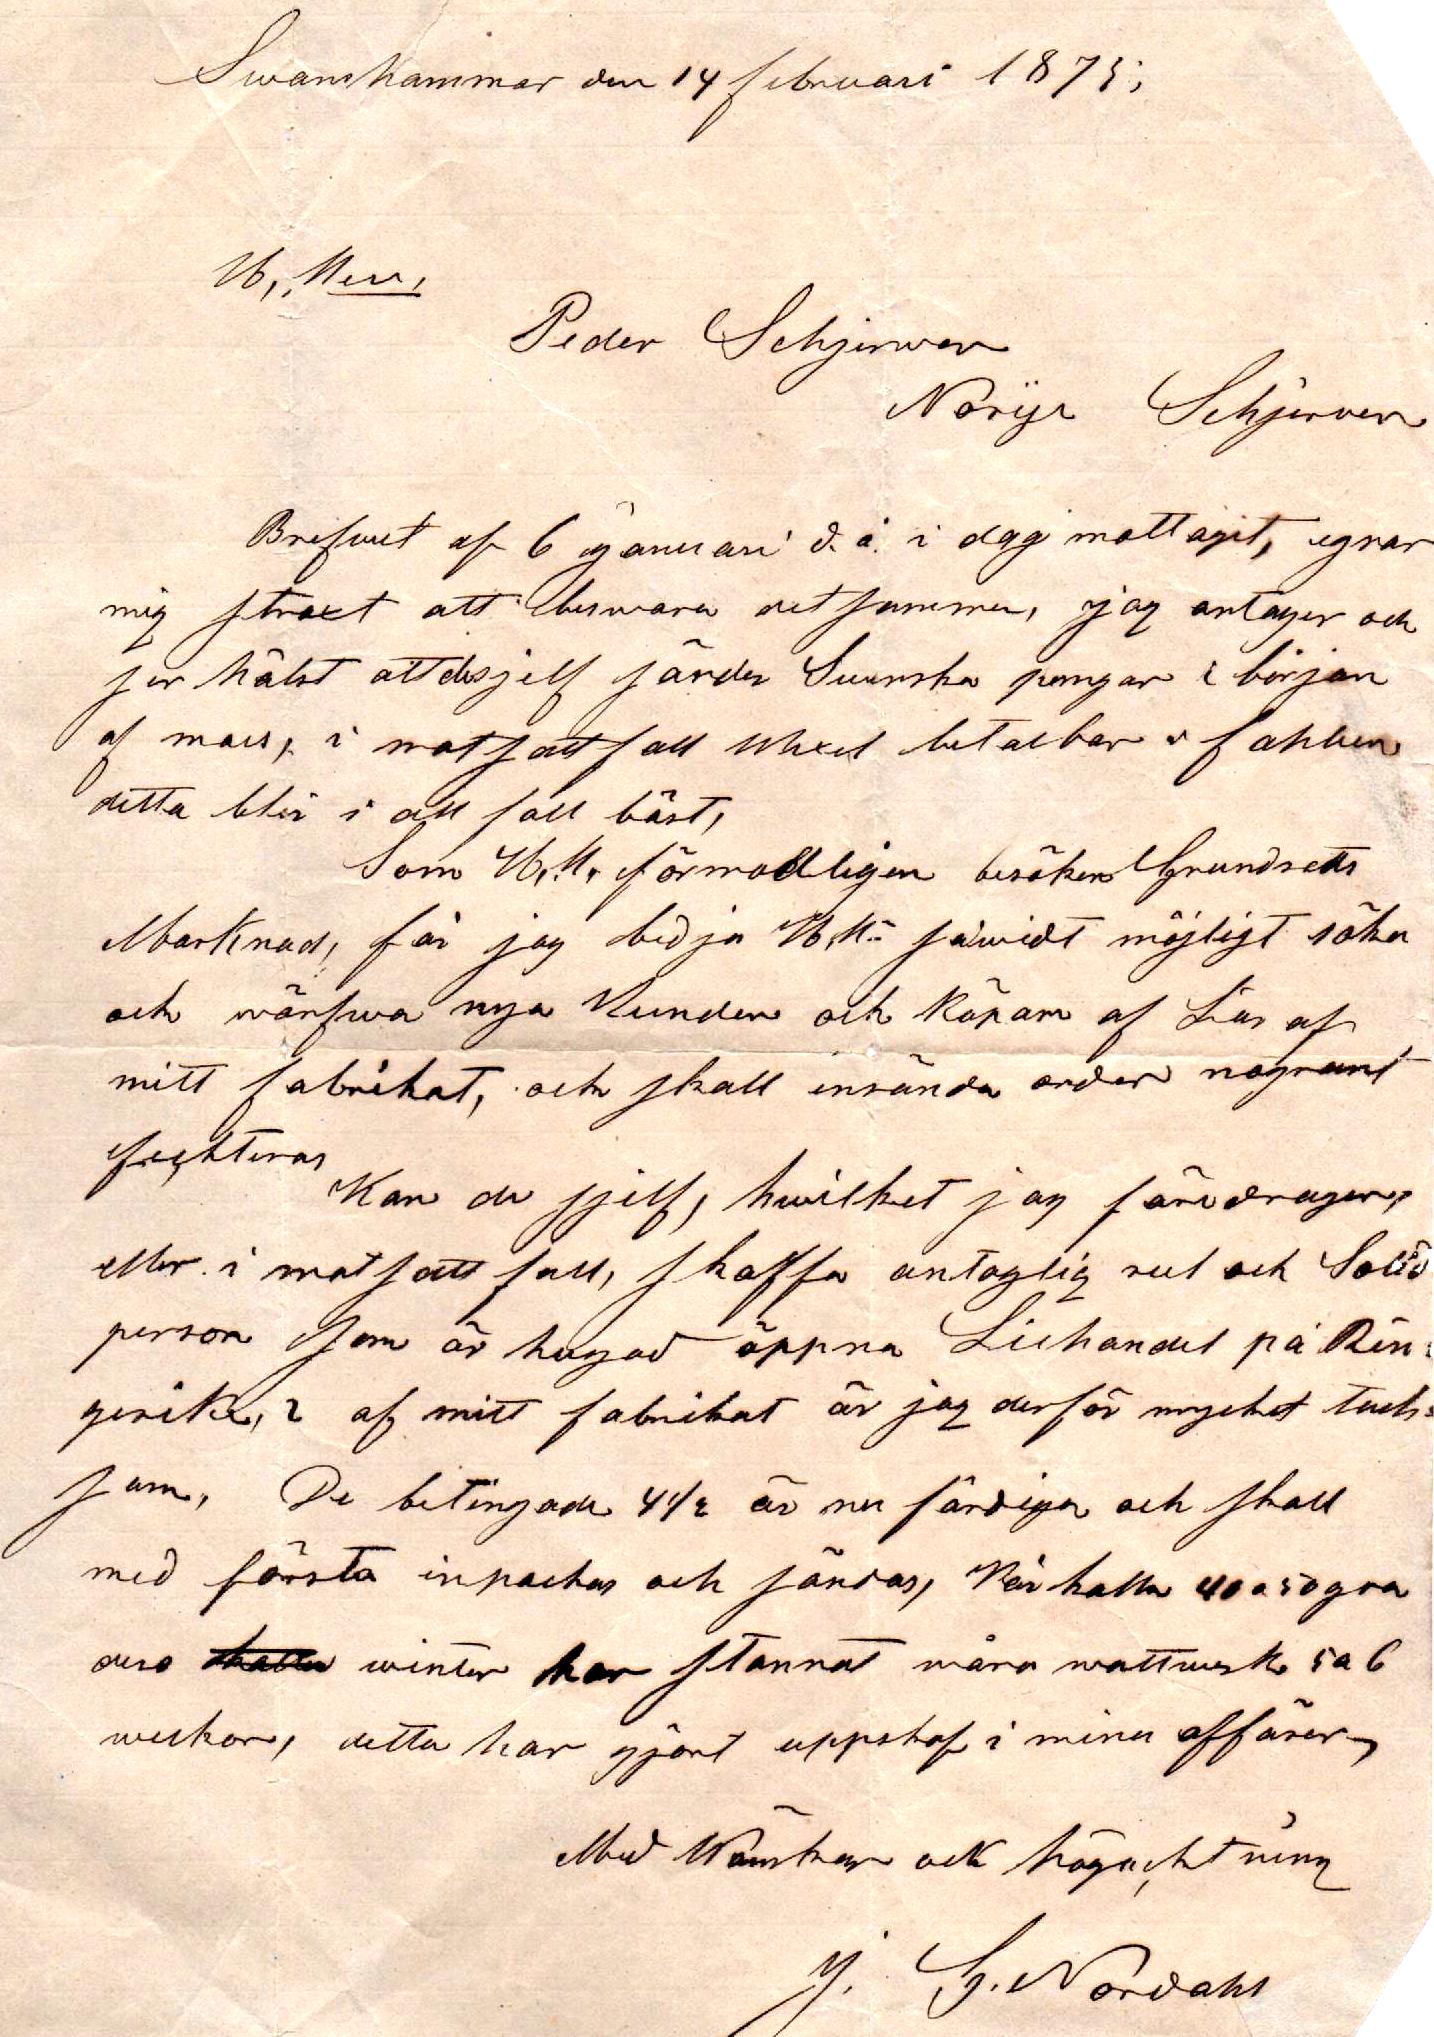 Swanshammar den 14 februari 1875;
W, Herr,
Peder Schjerwen
Norije Schjerven
Brefwet af 6 januari d. å. i dag mottagit, egnar
mig straxt att beswara detsamma, jag antager och
ser hälst att du sjelf sänder Swenska pengar i början
af mars, i motsatt fall Wexel betalbar
detta blir i all fall bäst,
Som W. H. förmodligen besöker Grundsetts
Marknad, får jag bedja W. H. såwidt möjligt söka
och wärfwa nya Kunder och Köpare af Liar af
mitt fabrikat, och skall insända order nogrant
efeckteras
Kan du sjelf, hwilket jag föredrager,
eller i motsatt fall, skaffa antaglig rel och Solid
person som är hugad öppna Liehandel på Rin-
gerike, af mitt fabrikat är jag derför mycket tack=
sam, De betingade 4 1/2 är nu färdiga och skall
med första inpackas och sändas, Wår kalla 40 a 50 gra
der winter har stannat wåra wattwerk 5 a 6
weckor, detta har gjort uppskof i mina affärer,
Med Wänskap och högacktning
J. G. Nordahl